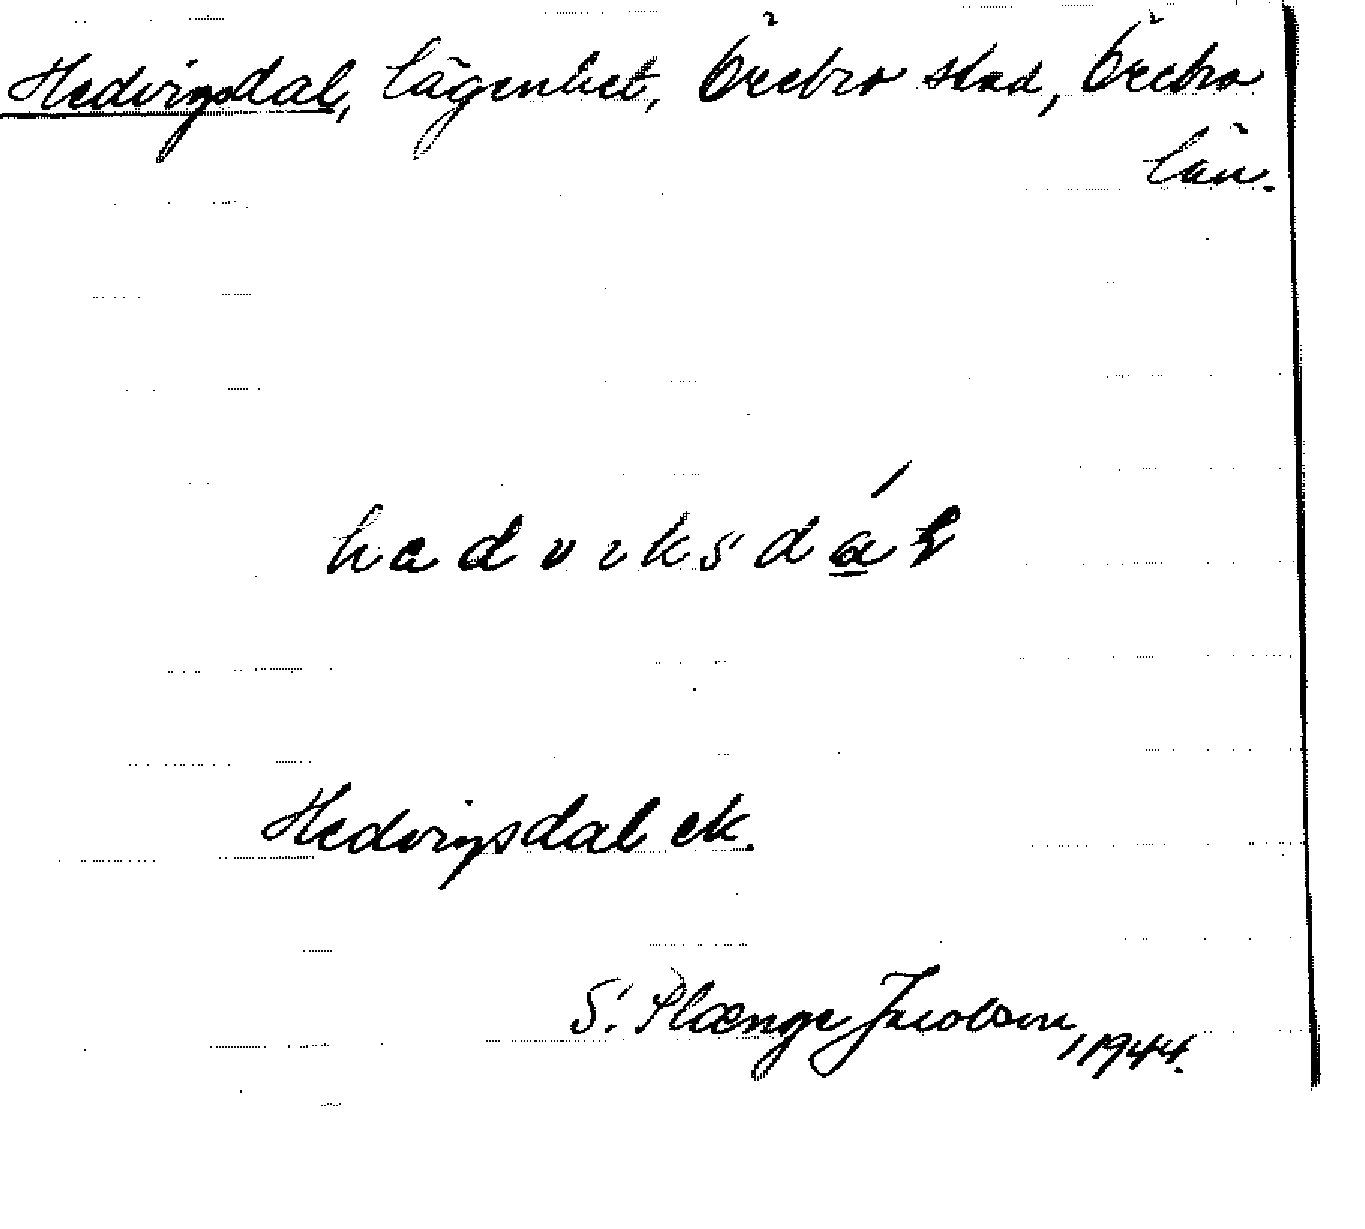 Hedvigsdal, lägenhet, Örebro stad, Örebro
län.
hadviksdál
Hedvigsdal ek.
S. Plænge Jacobson, 1944.